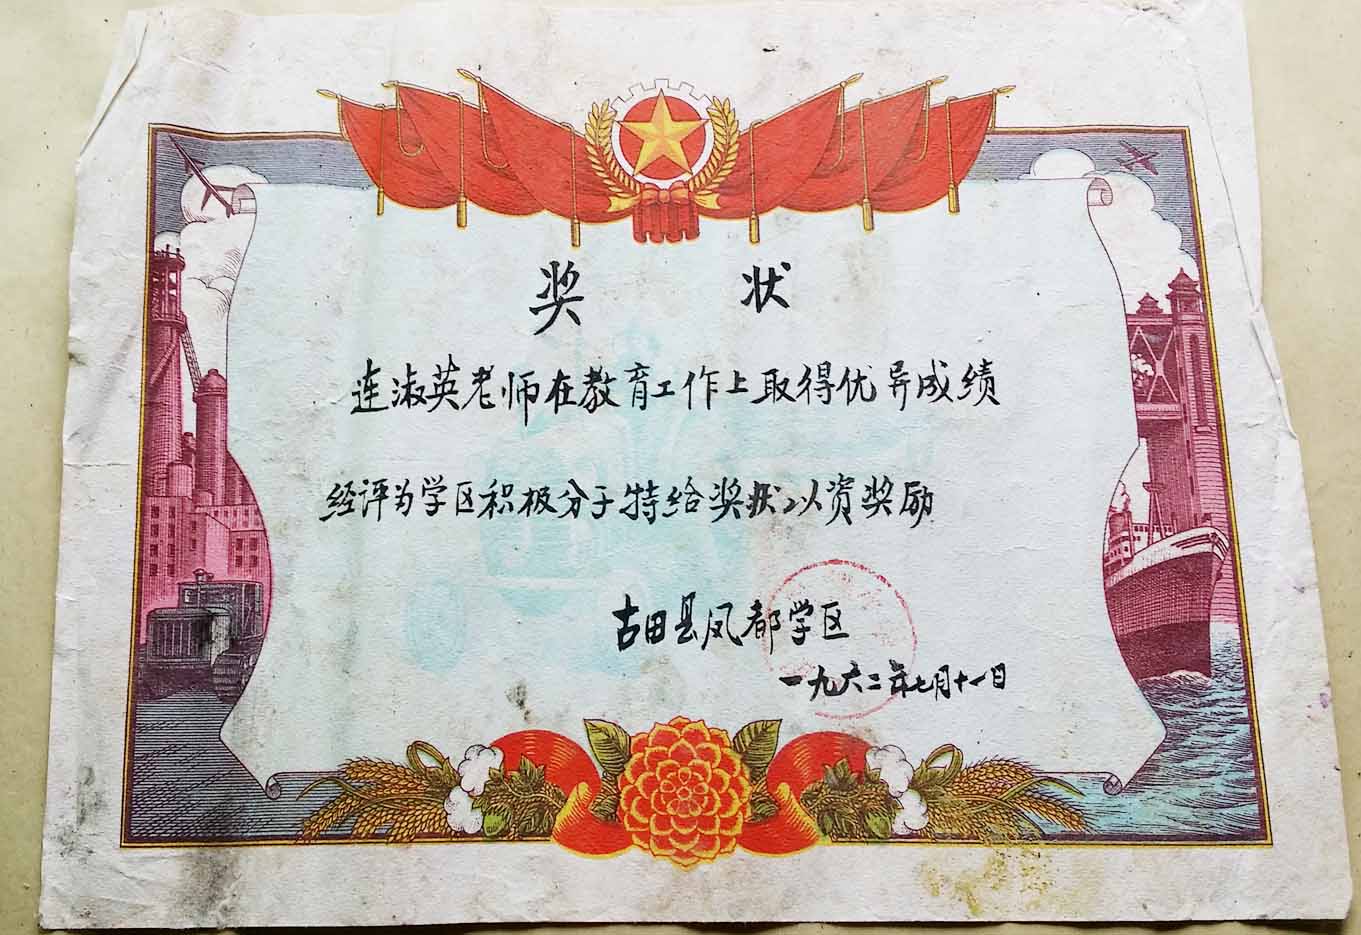 奖状
连淑英老师在教育工作上取得优异成绩
经评为学区积极分子特给奖状以资奖励
古田县凤都学区
一九六二年七月十一日